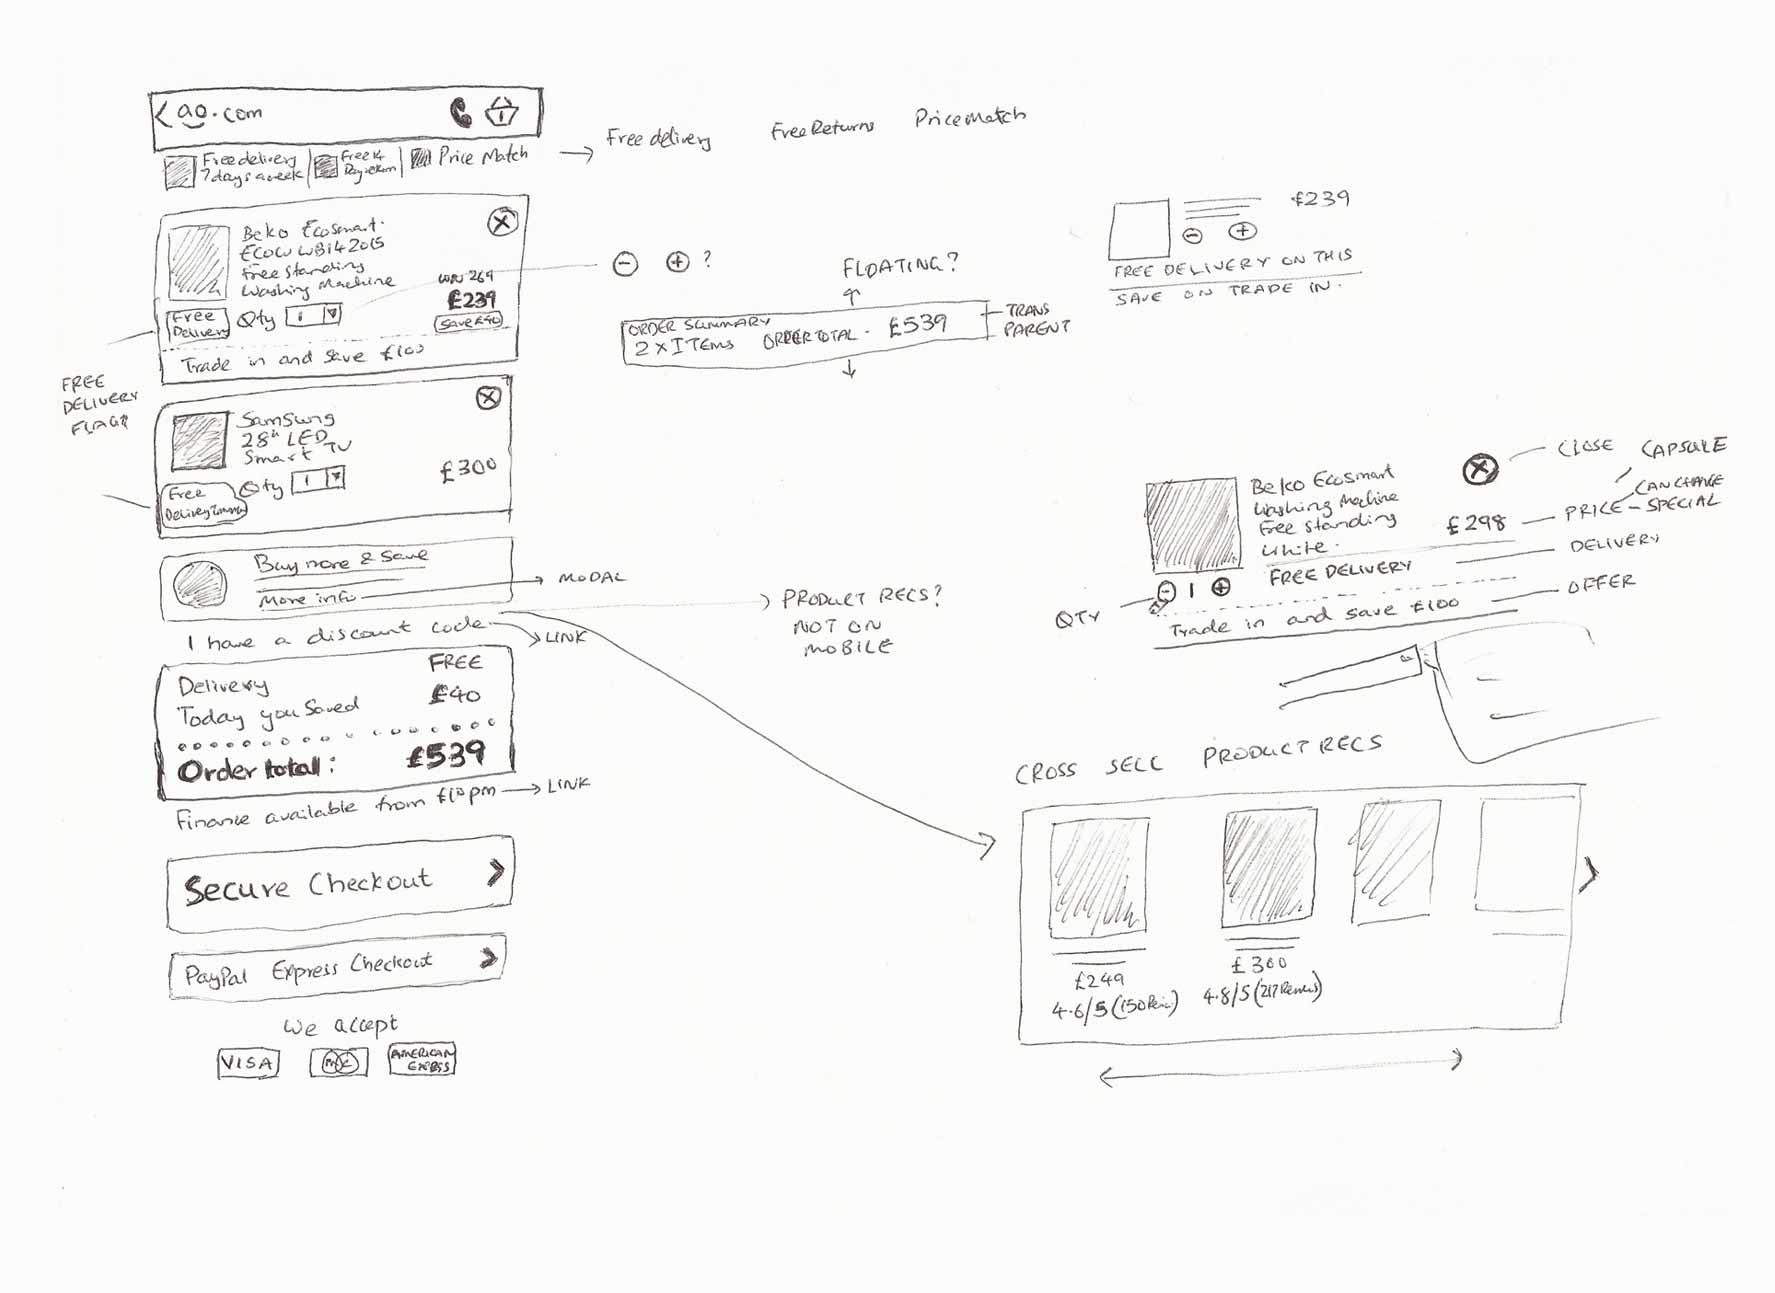 ao.com
Free delivery
7 days a week
Free 14
Day return
Price Match
Free delivery
Free Returns
Price Match
Beko EcoSmart
Free standing
Washing Machine
£239
Save £40
Free
Delivery
Qty 1
Trade in and save £100
FREE
DELIVERY
Samsung
28" LED
Smart TV
£300
Qty 1
Free
Buy more & save
More info
MODAL
I have a discount code
LINK
Delivery FREE
Today you saved £40
Order total: £539
Finance available from £10pm
LINK
Secure Checkout
PayPal Express Checkout
We accept
VISA
AMERICAN
?
FLOATING?
ORDER SUMMARY
2 x ITEMS ORDER TOTAL £539
TRANS
PARENT
PRODUCT RECS?
NOT ON
MOBILE
£239
FREE DELIVERY ON THIS
SAVE ON TRADE IN.
Beko EcoSmart
Washing Machine
Free standing
White.
£298
FREE DELIVERY
1
QTY
Trade in and save £100
CLOSE
CAPSULE
CAN CHANGE
PRICE - SPECIAL
DELIVERY
OFFER
CROSS SELL PRODUCT RECS
£249
4.6/5
£300
4.8/5